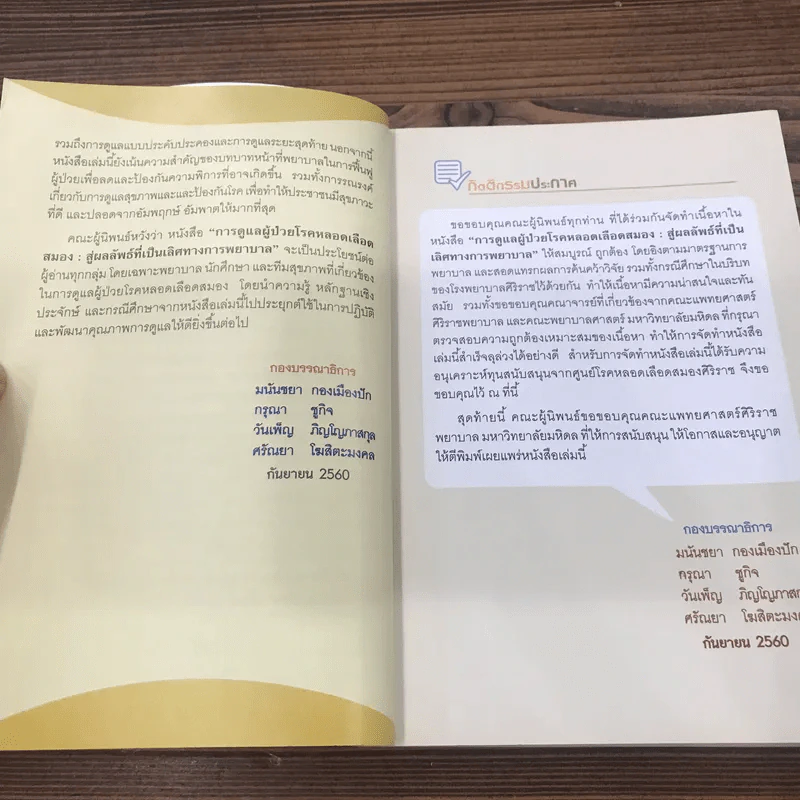 รวมถึงการดูแลแบบประคับประคองและการดูแลระยะสุดท้าย นอกจากนี้
หนังสือเล่มนี้ยังเน้นความสำคัญของบทบาทหน้าที่พยาบาลในการฟื้นฟู
ผู้ป่วยเพื่อลดและป้องกันความพิการที่อาจเกิดขึ้น รวมทั้งการรณรงค์
เกี่ยวกับการดูแลสุขภาพและและป้องกันโรค เพื่อทำให้ประชาชนมีสุขภาวะ
ที่ดี และปลอดจากอัมพฤกษ์ อัมพาตให้มากที่สุด
คณะผู้นิพนธ์หวังว่า หนังสือ "การดูแลผู้ป่วยโรคหลอดเลือด
สมอง : สู่ผลลัพธ์ที่เป็นเลิศทางการพยาบาล" จะเป็นประโยชน์ต่อ
ผู้อ่านทุกกลุ่ม โดยเฉพาะพยาบาล นักศึกษา และทีมสุขภาพที่เกี่ยวข้อง
ในการดูแลผู้ป่วยโรคหลอดเลือดสมอง โดยนำความรู้ หลักฐานเชิง
ประจักษ์ และกรณีศึกษาจากหนังสือเล่มนี้ไปประยุกต์ใช้ในการปฏิบัติ
และพัฒนาคุณภาพการดูแลให้ดียิ่งขึ้นต่อไป
กองบรรณาธิการ
มนันชยา กองเมืองปัก
กรุณา ชูกิจ
วันเพ็ญ ภิญโญภาสกุล
ศรัณยา โฆสิตะมงคล
กันยายน 2560
กิตติกรรมประกาศ
ขอขอบคุณคณะผู้นิพนธ์ทุกท่าน ที่ได้ร่วมกันจัดทำเนื้อหาใน
หนังสือ "การดูแลผู้ป่วยโรคหลอดเลือดสมอง : สู่ผลลัพธ์ที่เป็น
เลิศทางการพยาบาล" ให้สมบูรณ์ ถูกต้อง โดยอิงตามมาตรฐานการ
พยาบาล และสอดแทรกผลการค้นคว้าวิจัย รวมทั้งกรณีศึกษาในบริบท
ของโรงพยาบาลศิริราชไว้ด้วยกัน ทำให้เนื้อหามีความน่าสนใจและทัน
สมัย รวมทั้งขอขอบคุณคณาจารย์ที่เกี่ยวข้องจากคณะแพทยศาสตร์
ศิริราชพยาบาล และคณะพยาบาลศาสตร์ มหาวิทยาลัยมหิดล ที่กรุณา
ตรวจสอบความถูกต้องเหมาะสมของเนื้อหา ทำให้การจัดทำหนังสือ
เล่มนี้สำเร็จลุล่วงได้อย่างดี สำหรับการจัดทำหนังสือเล่มนี้ได้รับความ
อนุเคราะห์ทุนสนับสนุนจากศูนย์โรคหลอดเลือดสมองศิริราช จึงขอ
ขอบคุณไว้ ณ ที่นี้
สุดท้ายนี้ คณะผู้นิพนธ์ขอขอบคุณคณะแพทยศาสตร์ศิริราช
พยาบาล มหาวิทยาลัยมหิดล ที่ให้การสนับสนุน ให้โอกาสและอนุญาต
ให้ตีพิมพ์เผยแพร่หนังสือเล่มนี้
กองบรรณาธิการ
มนันชยา กองเมืองปัก
กรุณา ชูกิจ
วันเพ็ญ ภิญโญภาสกุ
ศรัณยา โฆสิตะมงค
กันยายน 2560